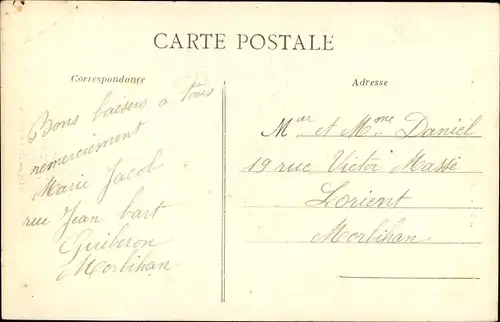 CARTE POSTALE
Correspondance
Bons baisers a tous
remerciement
Marie Jacob
rue Jean bart
Quiberon
Morbihan
Adresse
Mur et Mme Daniel
19 rue Victor Massé
Lorient
Morbihan